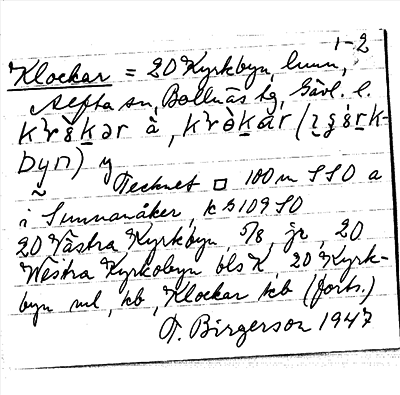 1-2
Klockar = 20 Kyrkbyn, hmn,
Alfta sn, Bollnäs tg, Gävl. l.
à
byn) y
Tecknet □ 100 m SSO a
i Sunnanåker, k 2109 SO
20 Västra Kyrkbyn, 5/8, jr, 20
Westra Kyrkobyn bls K, 20 Kyrk-
byn ml, kb, Klockar kb (forts.)
F. Birgerson 1947